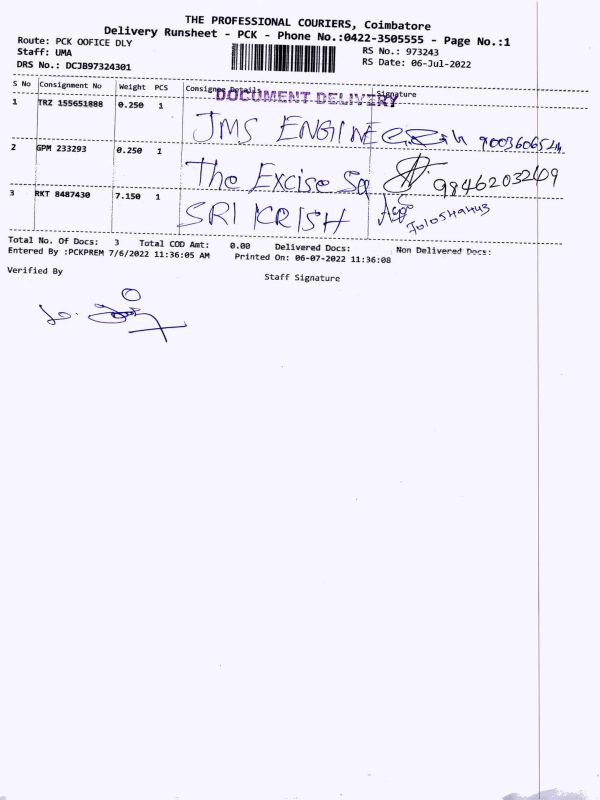 THE PROFESSIONAL COURIERS, Coimbatore
Delivery Runsheet - PCK - Phone No.:0422-3505555 - Page No.:1
Route: PCK OOFICE DLY
RS No.: 973243
Staff: UMA
RS Date: 06-Jul-2022
DRS No.: DCJB97324301
S No Consignment No Weight PCS Consignee Details Signature
DOCUMENT DELIVERY
1 TRZ 155651888 0.250 1 JMS ENGINE
2 GPM 233293 0.250 1 The Excise Sq
3 RKT 8487430 7.150 1 SRI KRISH
Total No. Of Docs: 3 Total COD Amt: 0.00 Delivered Docs: Non Delivered Docs:
Entered By :PCKPREM 7/6/2022 11:36:05 AM Printed On: 06-07-2022 11:36:08
Verified By Staff Signature